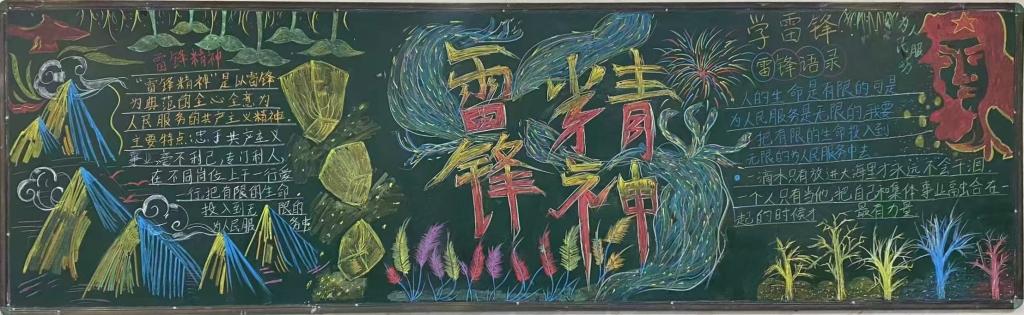 雷锋精神
"雷锋精神"是以雷锋
为典范的全心全意为
人民服务的共产主义精神
主要特点:忠于共产主义
事业,毫不利己,专门利人,
在不同岗位上干一行爱
一行,把有限的生命
投入到无限的
为人民服务中
雷锋
精神
学雷锋
为人服
雷锋语录
人的生命是有限的可是
为人民服务是无限的我要
把有限的生命投入到
无限的为人民服务中去
一滴水只有放进大海里才永远不会干涸,
一个人只有当他把自己和集体事业融合在一
起的时候才最有力量